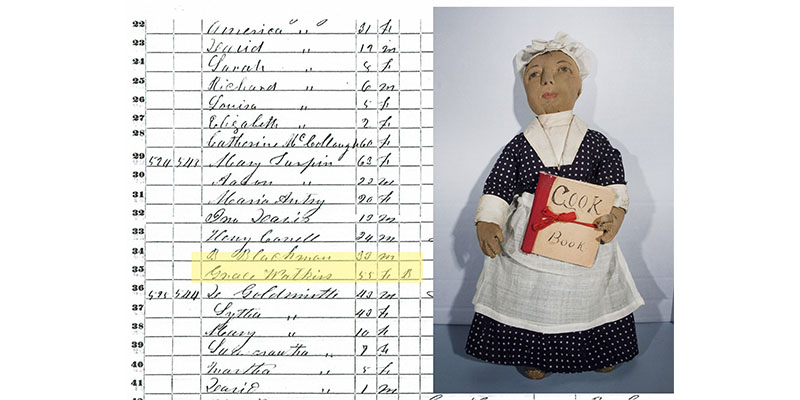 22 America " 31 f
23 David " 12 m
24 Sarah " 8 f
25 Richard " 6 m
26 Louisa " 5 f
27 Elizabeth " 2 f
28 Catherine McCollough 60 f
29 524 543 Mary Turpin 63 f
30 Aaron " 22 m
31 Maria Autry 20 f
32 12 m
33 Henry 24 m
34 B Blackman 33 m
35 Grace Watkins 55 f B
36 525 544 Goldsmith 43 m
37 " 43 f
38 Mary " 10 f
39 " 7 f
40 Martha " 5 f
41 David " 1 m
COOK
Book